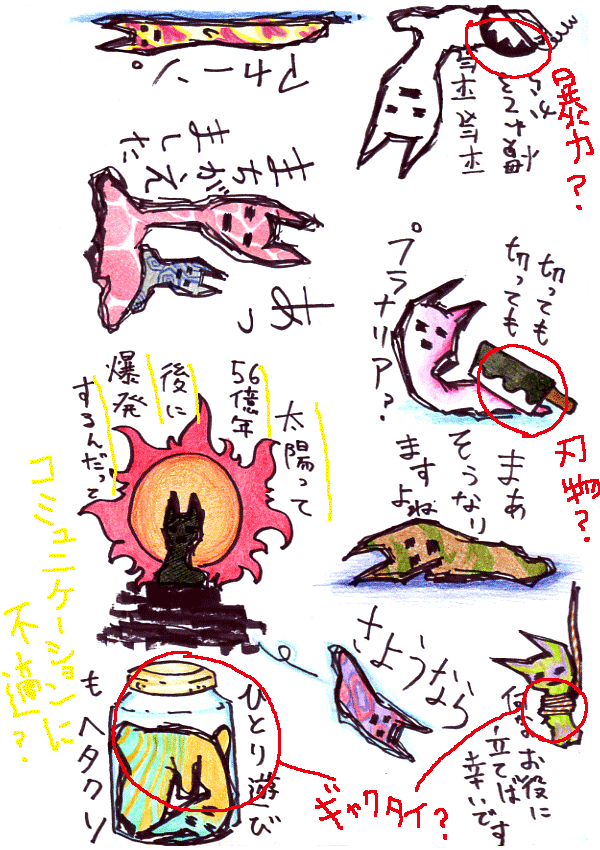 アカーン。
暴力?
あっ
まちがえ
ました
切っても
切っても
プラナリア?
刃物?
太陽って
56億年
後に
爆発
するんだって
コミュニケーションに
不適?
まあ
そうなり
ますよね
さようなら
ひとり遊び
もヘタクソ
ギャクタイ?
何かお役に
立てば
幸いです